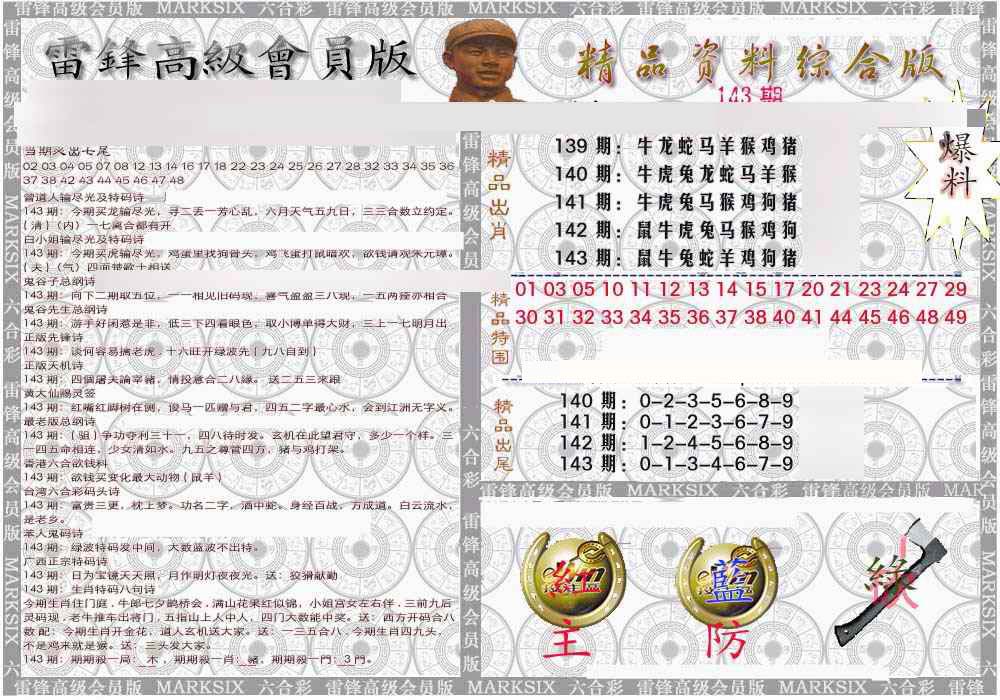 雷锋高级会员版 MARKSIX 六合彩 雷锋高级会员版 MARKSIX 六合彩 雷锋高级会员版 MARKSIX 六合彩
雷鋒高級會員版
精品资料综合版
143 期
爆料
02 03 04 05 07 08 12 13 14 16 17 18 22 23 24 25 26 27 28 32 33 34 35 36
37 38 42 43 44 45 46 47 48
曾道人输尽光及特码诗
143 期：今期买龙输尽光，寻二丢一芳心乱，六月天气五九日，三三合数立约定。
{ 清 }（内）一七离合都有开
白小姐输尽光及特码诗
143 期：今期买虎输尽光，鸡蛋里找狗骨头，鸡飞蛋打鼠暗欢，欲钱请观朱元璋。
鬼谷子总纲诗
143 期：向下二期取五位，一一相见旧码现，喜气盈盈三八现，一五两座亦相合
鬼谷先生总纲诗
143 期：游手好闲惹是非，低三下四看眼色，取小博单得大财，三上一七明月出
正版先锋诗
143 期：谈何容易擒老虎．十六旺开绿波先 { 九八自到 }
正版天机诗
143 期：四個屠夫論宰豬，情投意合二八緣。 送二五三來跟
黄大仙赐灵签
143 期：红嘴红脚树在侧，俊马一匹赠与君，四五二字最心水，会到江洲无字义。
最老版总纲诗
143 期：{ 诅 } 争功夺利三十一，四八待时发。玄机在此望君守，多少一个样。三
一四五命相连，少女清如水。九五之尊管四方，猪与鸡打架。
香港六合欲钱料
143 期：欲钱买变化最大动物 { 鼠羊 }
台湾六合彩码头诗
143 期：富贵三更，枕上梦。功名二字，酒中蛇。身经百战，方成道。白云流水，
是老乡。
本人鬼码诗
143 期：绿波特码发中间，大数蓝波不出特。
广西正宗特码诗
143 期：日为宝镜天天照，月作明灯夜夜光。送：狡猾献勤
143 期：生肖特码八句诗
今期生肖住门庭．牛郎七夕鹊桥会．满山花果红似锦，小姐宫女左右伴．三前九后
灵码现．老牛推车出将门．五指山上人中人，四门大数能中奖。送：西方开码合八
数 配：今期生肖开金花，道人玄机送大家。送：一三五合八．今期生肖四九头，
不是鸡来就是猴。送：三头发大家。
143 期：期期殺一局：木，期期殺一肖：豬，期期殺一門：3 門。
精品出肖
139 期：牛龙蛇马羊猴鸡猪
140 期：牛虎兔龙蛇马羊猴
141 期：牛虎兔马猴鸡狗猪
142 期：鼠牛虎兔马猴鸡狗
143 期：鼠牛兔蛇羊鸡狗猪
精品特围
01 03 05 10 11 12 13 14 15 17 20 21 23 24 27 29
30 31 32 33 34 35 36 37 38 40 41 44 45 46 48 49
精品出尾
140 期：0-2-3-5-6-8-9
141 期：0-1-2-3-6-7-9
142 期：1-2-4-5-6-8-9
143 期：0-1-3-4-6-7-9
雷锋高级会员版 MARKSIX 六合彩 雷锋高级会员版 MAR
紅
主
藍
防
綠
雷锋高级会员版 MARKSIX 六合彩 雷锋高级会员版 MARKSIX 六合彩 雷锋高级会员版 MARKSIX 六合彩